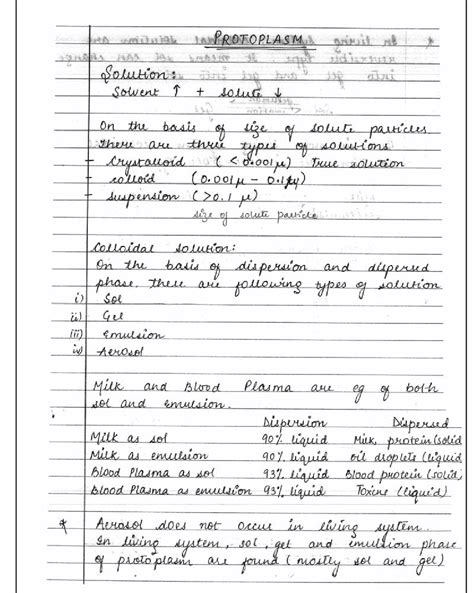 PROTOPLASM
Solution:
Solvent ↑ + solute ↓
On the basis of size of solute particles
there are three types of solutions
- Crystalloid (<0.001μ) True solution
- colloid (0.001μ - 0.1μ)
- suspension (>0.1 μ)
size of solute particle
Colloidal solution:
On the basis of dispersion and dispersed
phase. there are following types of solution
i) Sol
ii) Gel
iii) Emulsion
iv) Aerosol
Milk and Blood Plasma are eg of both
sol and emulsion.
Dispersion Dispersed
Milk as sol 90% liquid Milk, protein (solid
Milk as emulsion 90% liquid oil droplets (liquid
Blood Plasma as sol 93% liquid Blood protein (solid)
Blood Plasma as emulsion 93% liquid Toxine (liquid)
* Aerosol does not occur in living system.
In living system, sol, gel and emulsion phase
of protoplasm are found (mostly sol and gel)